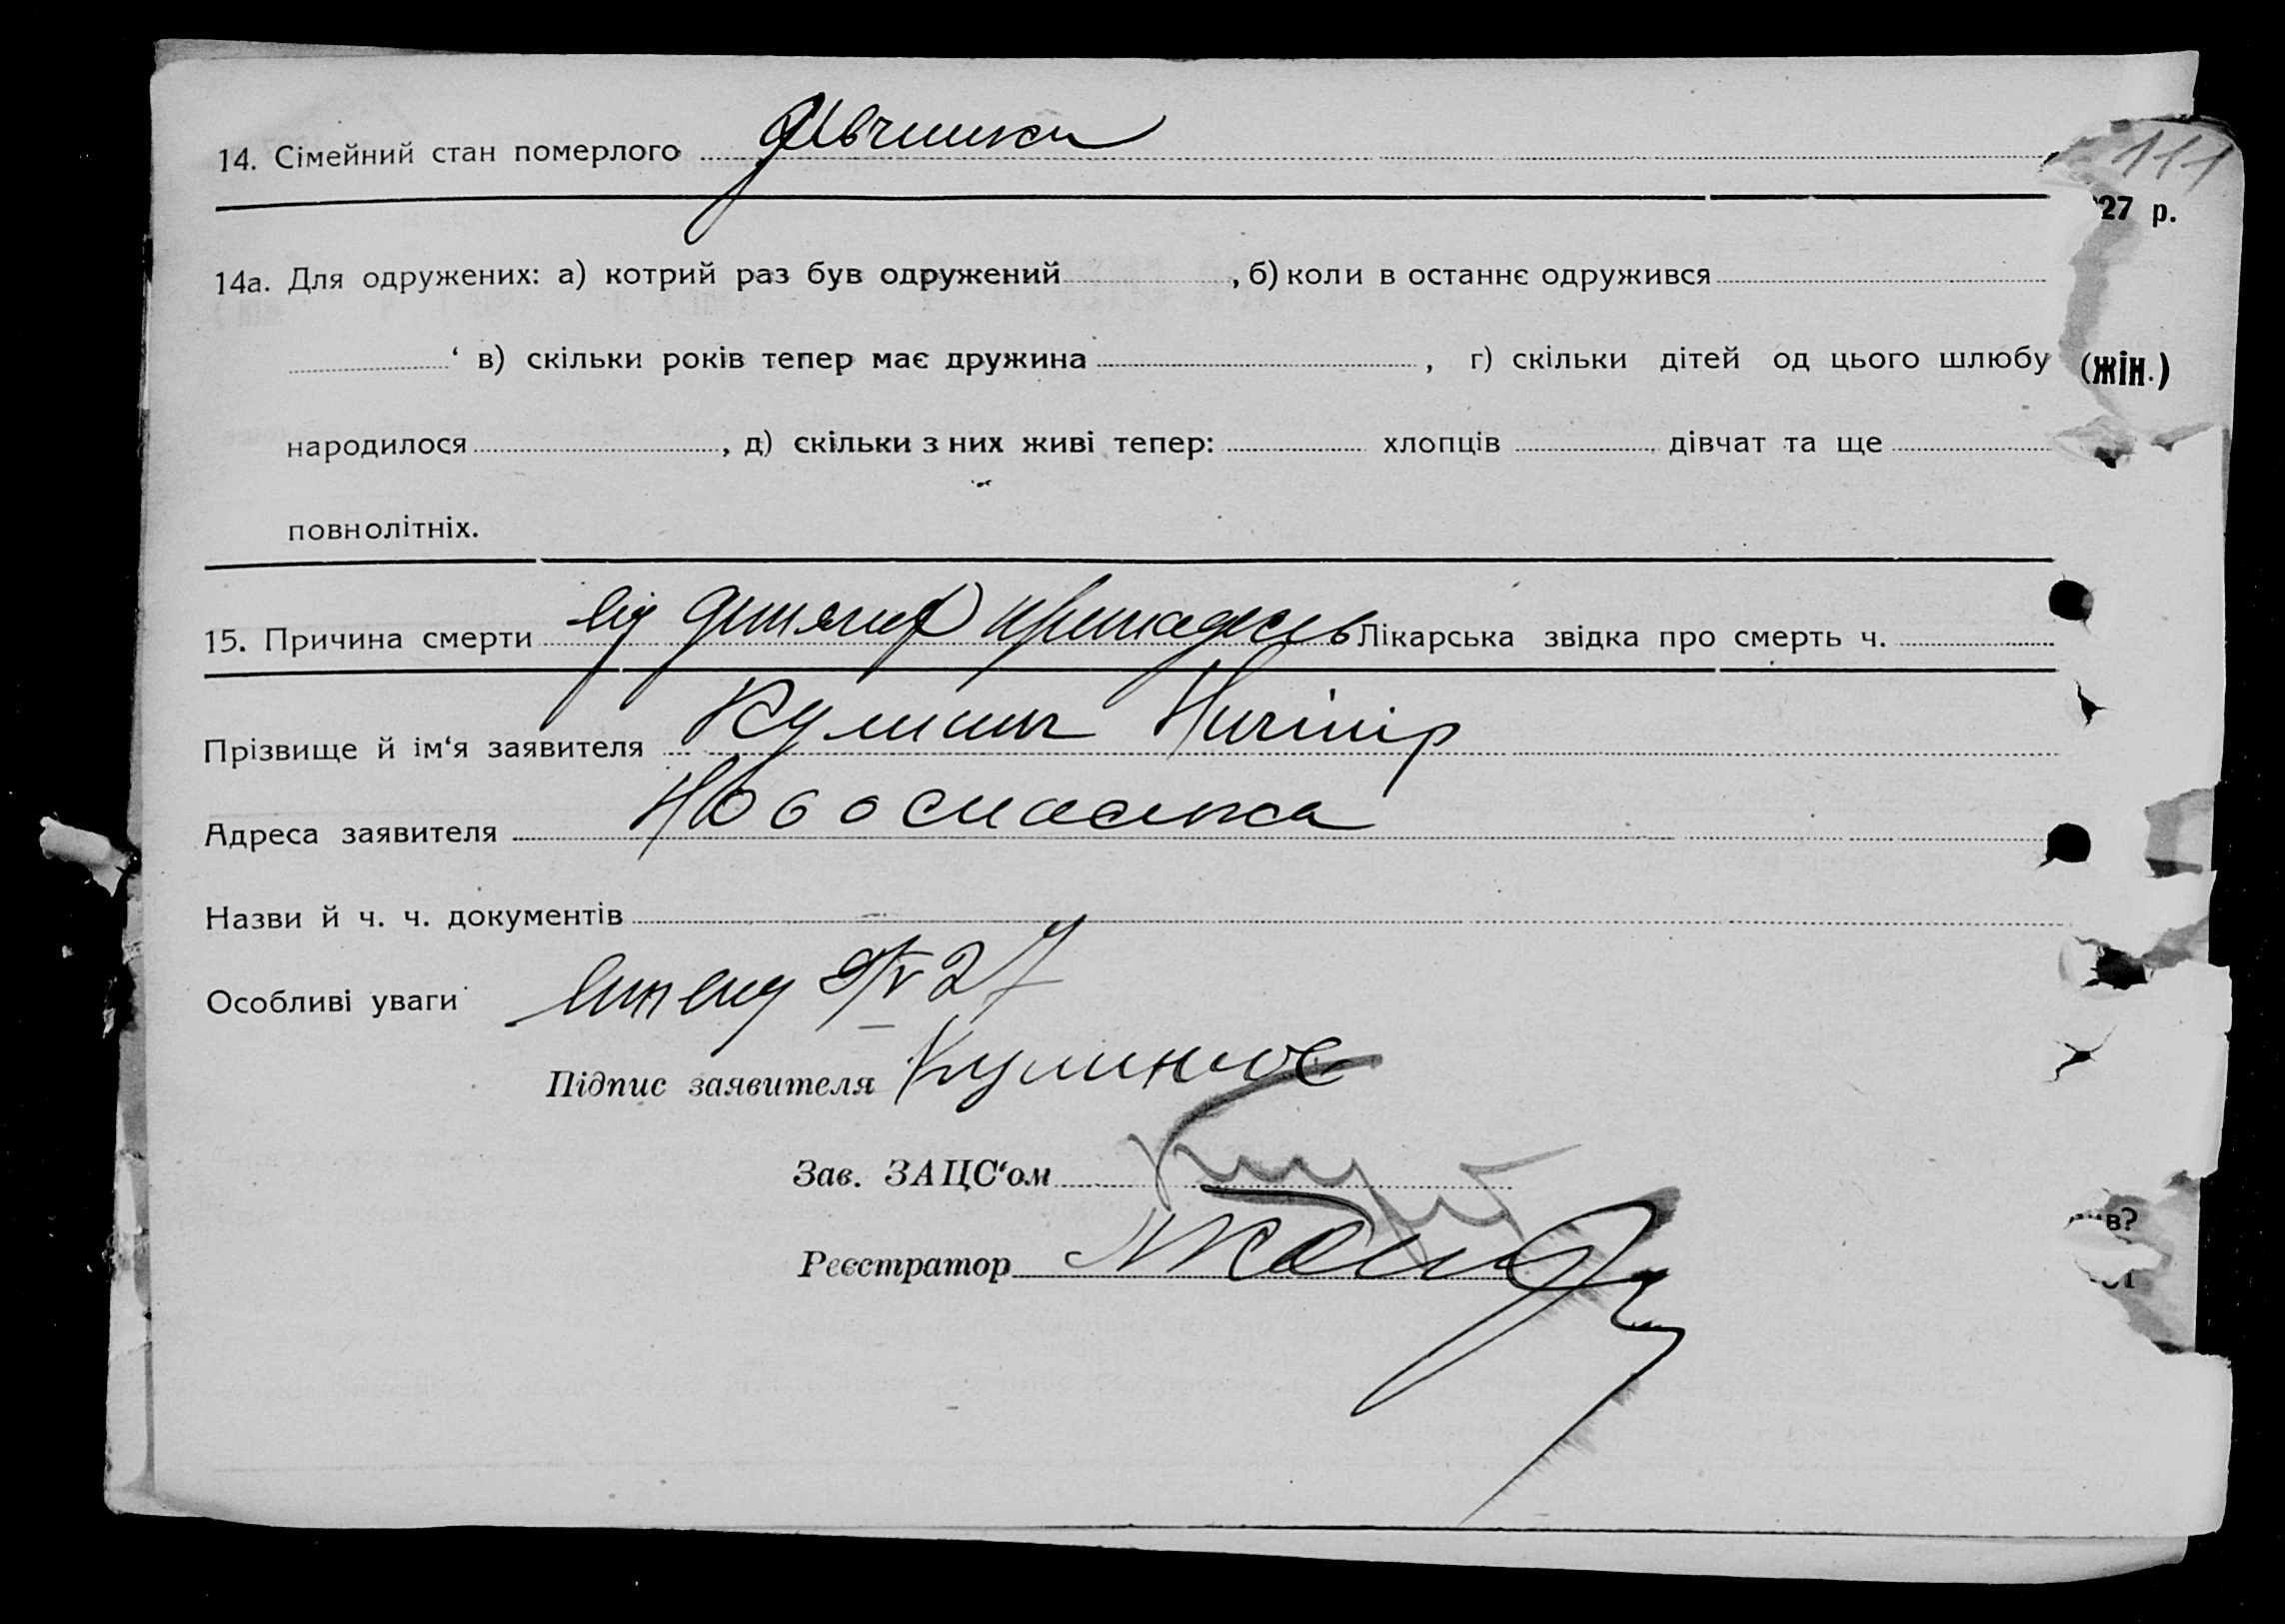 111
14. Сімейний стан померлого дівчинка
27 р.
14а. Для одружених: а) котрий раз був одружений , б) коли в останнє одружився
‘ в) скільки років тепер має дружина , г) скільки дітей од цього шлюбу
(жін.)
народилося , д) скільки з них живі тепер: хлопців , дівчат та ще
повнолітніх.
15. Причина смерти від Лікарська звідка про смерть ч.
Прізвище й ім‘я заявителя Ничипір
Адреса заявителя Новоспаська
Назви й ч. ч. документів
Особливі уваги 27
Підпис заявителя
Зав. ЗАЦС‘ом
в?
Реєстратор